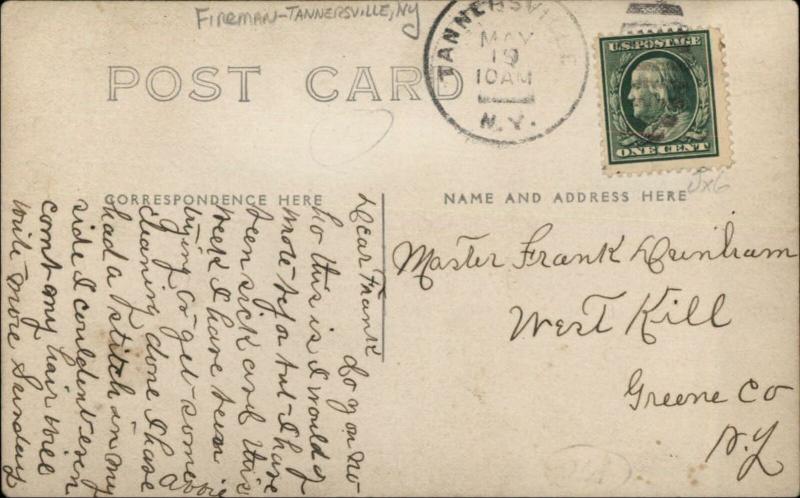 FIREMAN-TANNERSVILLE, NY
POST CARD
TANNERSVILLE
MAY
19
10AM
N.Y.
U.S. POSTAGE
ONE CENT
CORRESPONDENCE HERE
NAME AND ADDRESS HERE
Dear Frank
do you no
ho this is I would of
wrote before but I have
been sick and this
week I have been
trying to get some
cleaning done I have
had a stitch in my
side I couldent even
comt my hair will
write more Sunday
Master Frank
West Kill
Greene Co
N.Y